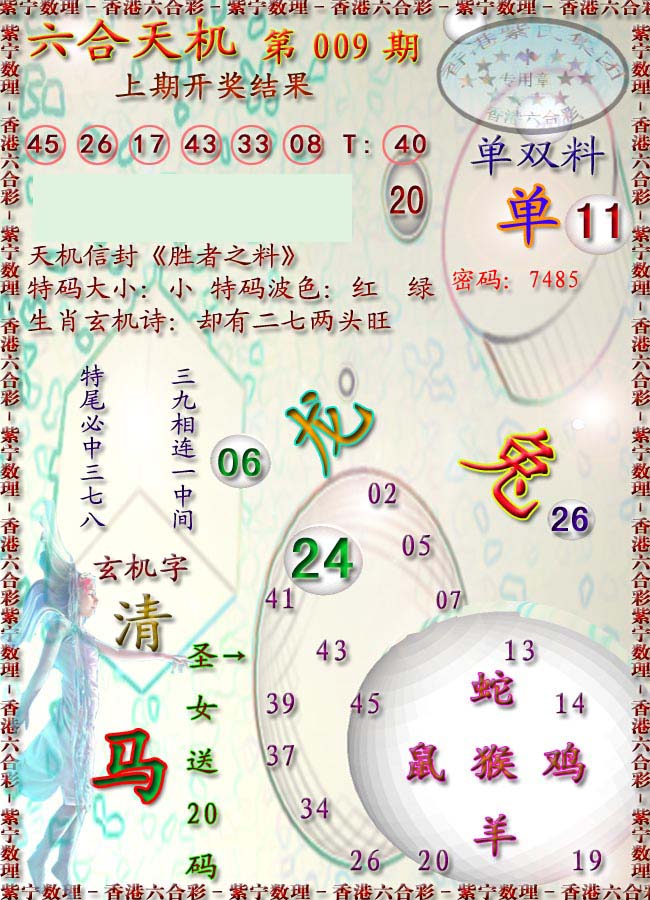 紫宁数理－香港六合彩－紫宁数理－香港六合彩－紫宁数理－香港六合彩
六合天机 第 009 期
香港紫宁集团
专用章
香港六合彩
上期开奖结果
45 26 17 43 33 08 T: 40
单双料
20
单 11
天机信封《胜者之料》
特码大小：小 特码波色：红 绿
密码：7485
生肖玄机诗：却有二七两头旺
三九相连一中间
特尾必中三七八
06
龙
兔
26
02
24
05
41
07
玄机字
清
圣女送20码
→
马
43
13
39
45
蛇
14
37
鼠 猴 鸡
34
羊
26
20
19
紫宁数理－香港六合彩－紫宁数理－香港六合彩－紫宁数理－香港六合彩